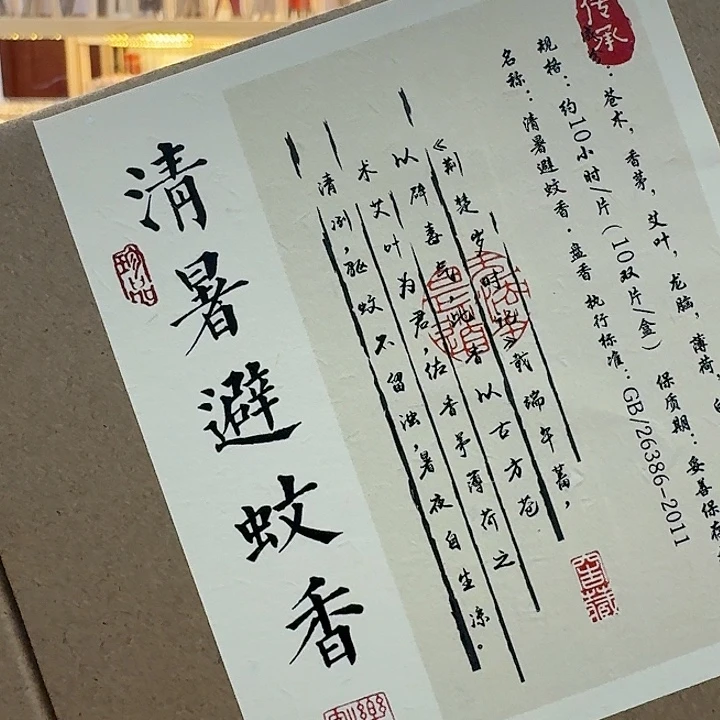 传承
苍术，香茅，艾叶，龙脑，薄荷，
规格：约10小时/片（10双片/盒） 保质期：妥善保存
名称：清暑避蚊香·盘香 执行标准：GB/26386-2011
《荆楚岁时记》载端午蓄，
以辟毒气，此香以古方苍
术艾叶为君，佐香茅薄荷之
清冽，驱蚊不留浊，暑夜自生凉。
清暑避蚊香
珍品